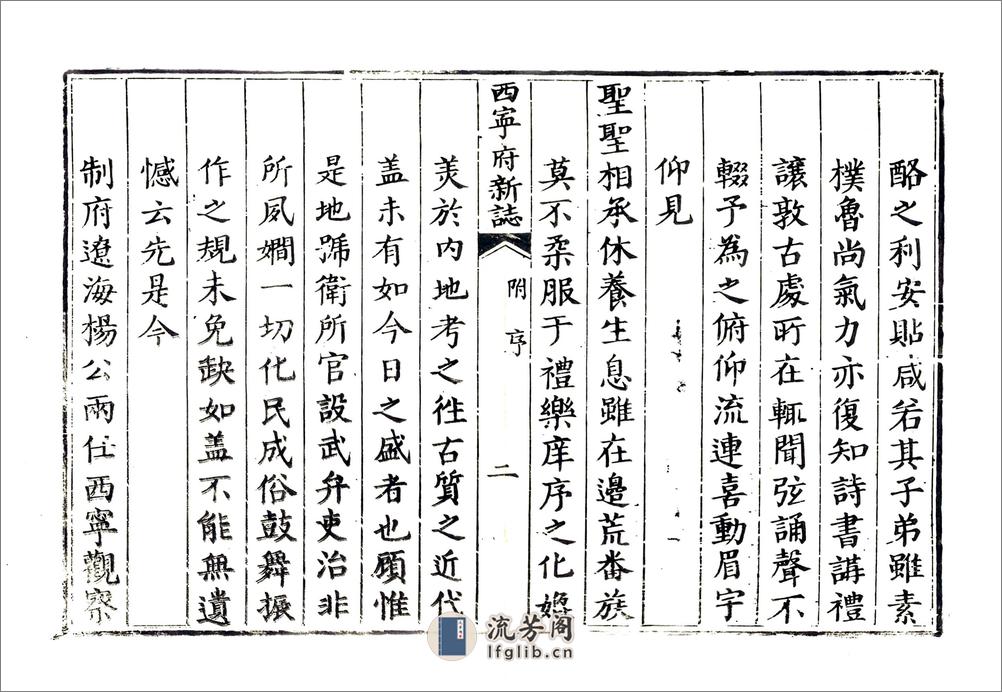 酪之利安貼咸若其子弟雖素
樸魯尚氣力亦復知詩書講禮
讓敦古處所在輒聞弦誦聲不
輟予為之俯仰流連喜動眉宇
仰見
聖聖相承休養生息雖在邊荒番族
莫不柔服于禮樂庠序之化媲
西寧府新誌
附序
二
美於內地考之徃古質之近代
盖未有如今日之盛者也顧惟
是地號衛所官設武弁吏治非
所夙嫺一切化民成俗鼓舞振
作之規未免缺如盖不能無遺
憾云先是今
制府遼海楊公兩任西寧觀察
流芳阁
lfglib.cn